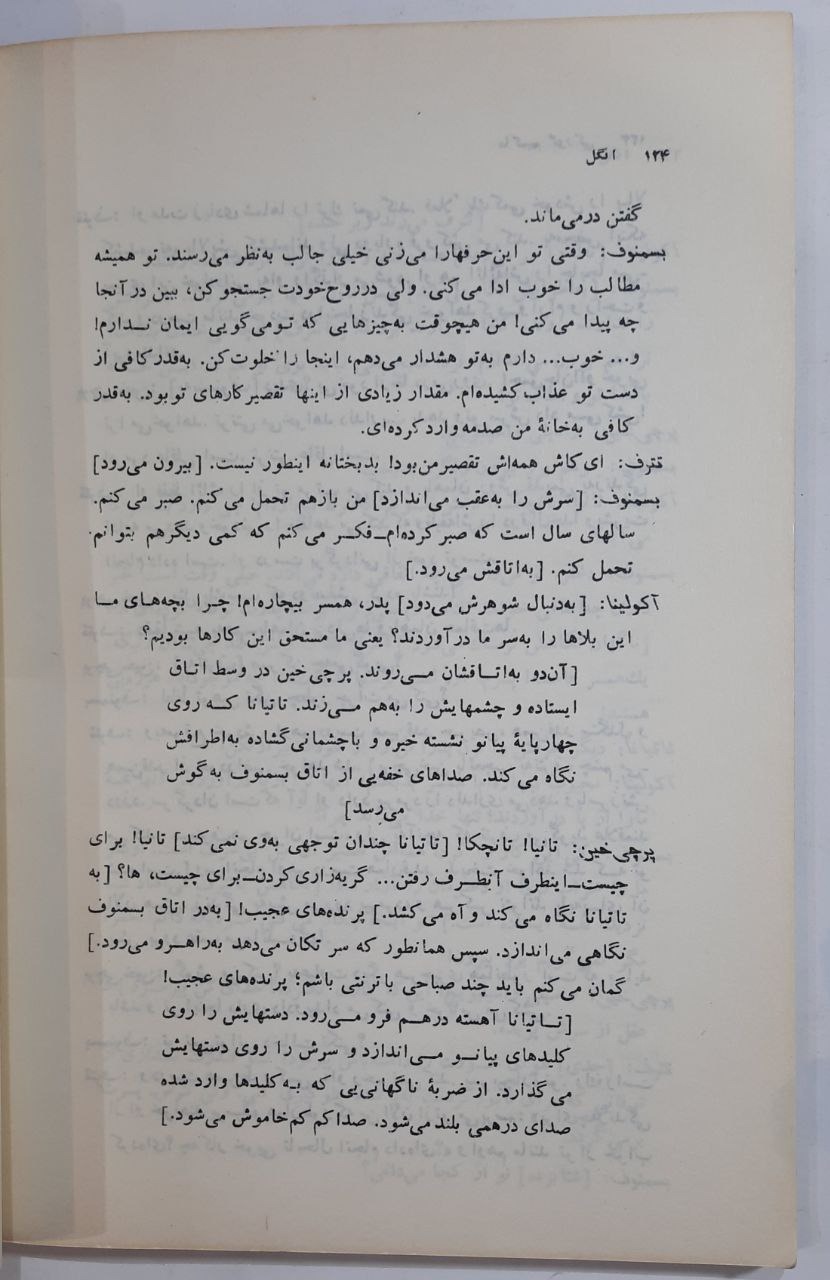 ۱۳۴ انگل
گفتن درمی‌ماند.
بسمنوف: وقتی تو این‌حرفهارا می‌زنی خیلی جالب به‌نظر می‌رسند. تو همیشه
مطالب را خوب ادا می‌کنی. ولی درروح‌خودت جستجوکن، ببین درآنجا
چه پیدا می‌کنی! من هیچوقت به‌چیزهایی که تـومی‌گویی ایمان نـدارم!
و... خوب... دارم به‌تو هشدار می‌دهم، اینجا را خلوت‌کن. به‌قدرکافی از
دست تو عذاب‌کشیده‌ام. مقدار زیادی از اینها تقصیرکارهای توبود. به‌قدر
کافی به‌خانهٔ من صدمه واردکرده‌ای.
تترف: ای‌کاش همه‌اش تقصیرمن‌بود! بدبختانه اینطور نیست. [بیرون می‌رود]
بسمنوف: [سرش را به‌عقب می‌اندازد] من بازهم تحمل می‌کنم. صبر می‌کنم.
سالهای سال است که صبرکرده‌ام‌ـ‌فکـر می‌کنم که کمی دیگرهم بتوانم
تحمل کنم. [به‌اتاقش می‌رود.]
آکولینا: [به‌دنبال شوهرش می‌دود] پدر، همسر بیچاره‌ام! چـرا بچه‌های مـا
این بلاها را به‌سر ما درآوردند؟ یعنی ما مستحق این کارها بودیم؟
[آن‌دو به‌اتـاقشان مـی‌روند. پرچی‌خین در وسط اتـاق
ایستاده و چشمهایش را به‌هم مـی‌زند. تاتیانا کـه روی
چهارپایهٔ پیانو نشسته خیره و باچشمانی‌گشاده به‌اطرافش
نگاه می‌کند. صداهای خفه‌یی از اتاق بسمنوف به‌گوش
می‌رسد]
پرچی‌خین: تانیا! تانچکا! [تاتیانا چندان توجهی به‌وی نمی‌کند] تانیا! برای
چیست‌ـ‌اینطرف آنطـرف رفتن... گریه‌زاری‌کردن‌ـ‌برای چیست، ها؟ [به
تاتیانا نگاه می‌کند و آه می‌کشد.] پرنده‌های عجیب! [به‌در اتاق بسمنوف
نگاهی می‌اندازد. سپس همانطور که سر تکان می‌دهد به‌راهـرو می‌رود.]
گمان می‌کنم باید چند صباحی باترنتی باشم؛ پرنده‌های عجیب!
[تـاتیانا آهسته درهـم فرو مـی‌رود. دستهایش را روی
کلیدهای پیانـو مـی‌اندازد و سرش را روی دستهایش
می‌گذارد. از ضربهٔ ناگهانی‌یی که بـه‌کلیدها وارد شده
صدای درهمی بلند می‌شود. صداکم‌کم‌خاموش می‌شود.]